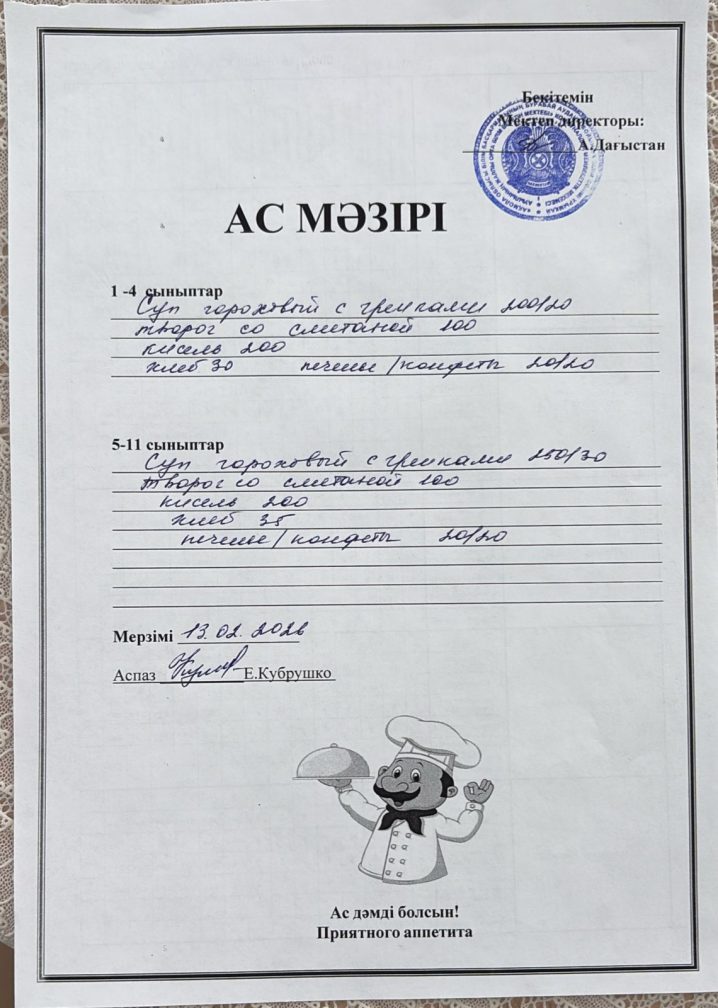 Бекітемін
Мектеп директоры:
А.Дағыстан
АС МӘЗІРІ
1 -4 сыныптар
Суп гороховый с гренками 200/20
творог со сметаной 100
кисель 200
хлеб 30 печенье/конфеты 20/20
5-11 сыныптар
Суп гороховый с гренками 250/30
творог со сметаной 100
кисель 200
хлеб 35
печенье/конфеты 20/20
Мерзімі 13.02.2026
Аспаз Е.Кубрушко
Ас дәмді болсын!
Приятного аппетита